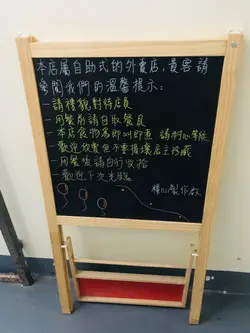 本店屬自助式的外賣店,貴客請
參閱我們的溫馨提示:
-請禮貌對待店員
-用餐前請自取餐具
-本店食物為即叫即煮 請耐心等候
-歡迎放實但不要損壞店主珍藏
-用餐後請自行收拾
-歡迎下次光臨
製作啟